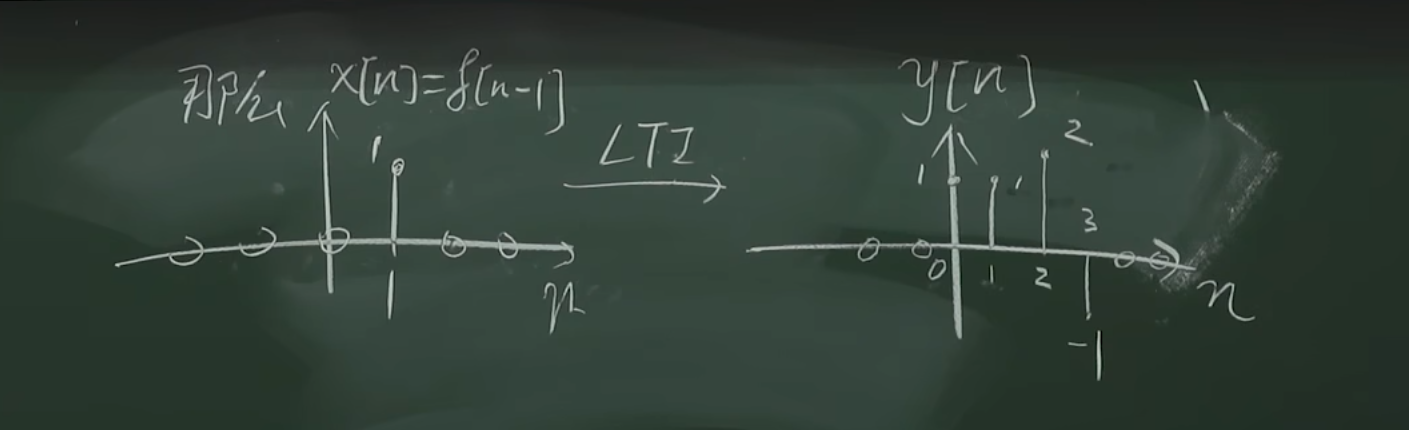 那么 x[n]=δ[n-1]
1
1
n
LTI
y[n]
1
1
2
3
0
1
2
-1
n